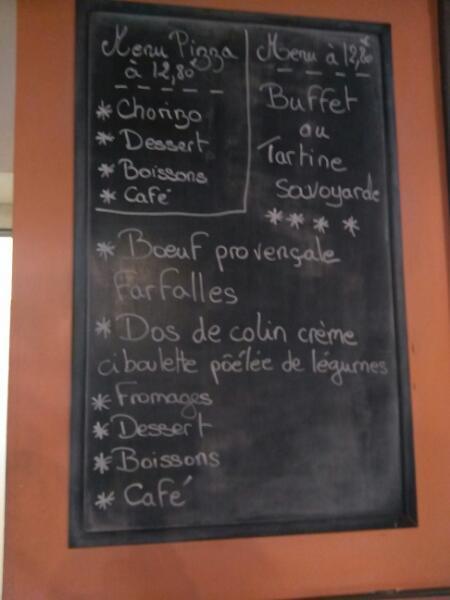 Menu Pizza
à 12,80€
* Chorizo
* Dessert
* Boissons
* Café
Menu à 12,80€
Buffet
ou
Tartine
Savoyarde
* * * *
* Boeuf provençale
Farfalles
* Dos de colin crème
ciboulette pôélée de légumes
* Fromages
* Dessert
* Boissons
* Café